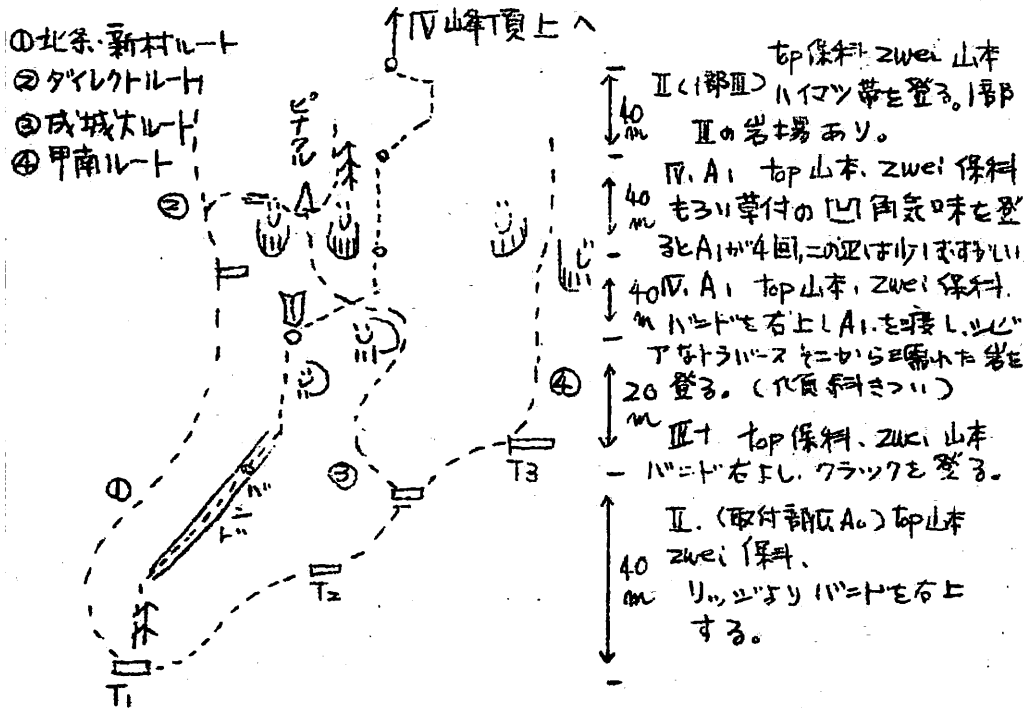 Ⅳ峰頂上へ
①北条・新村ルート
②ダイレクトルート
③成城大ルート
④甲南ルート
ピナクル
②
①
③
④
バンド
T1
T2
T3
40m
Ⅱ(1部Ⅲ)
top保科 zwei 山本
ハイマツ帯を登る。1部
Ⅲの岩場あり。
40m
Ⅳ. A1 top山本. zwei 保科
もろい草付の凹角気味を登
るとA1が4回,この辺は少しむずかしい
40m
Ⅳ. A1 top山本, zwei 保科.
バンドを右上しA1.を渡し.シビ
アなトラバース そこから濡れた岩を
登る。(傾斜きつい)
20m
Ⅲ+ top保科. zwei 山本
バンド右上し、クラックを登る。
40m
Ⅱ. (取付部はA0) top山本
zwei 保科.
リッジよりバンドを右上
する。